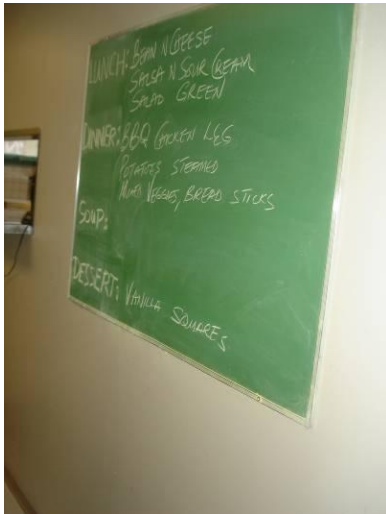 LUNCH: BEAN N CHEESE
SALSA N SOUR CREAM
SALAD GREEN
DINNER: BBQ CHICKEN LEG
POTATOES STEAMED
MIXED VEGGIES, BREAD STICKS
SOUP:
DESSERT: VANILLA SQUARES